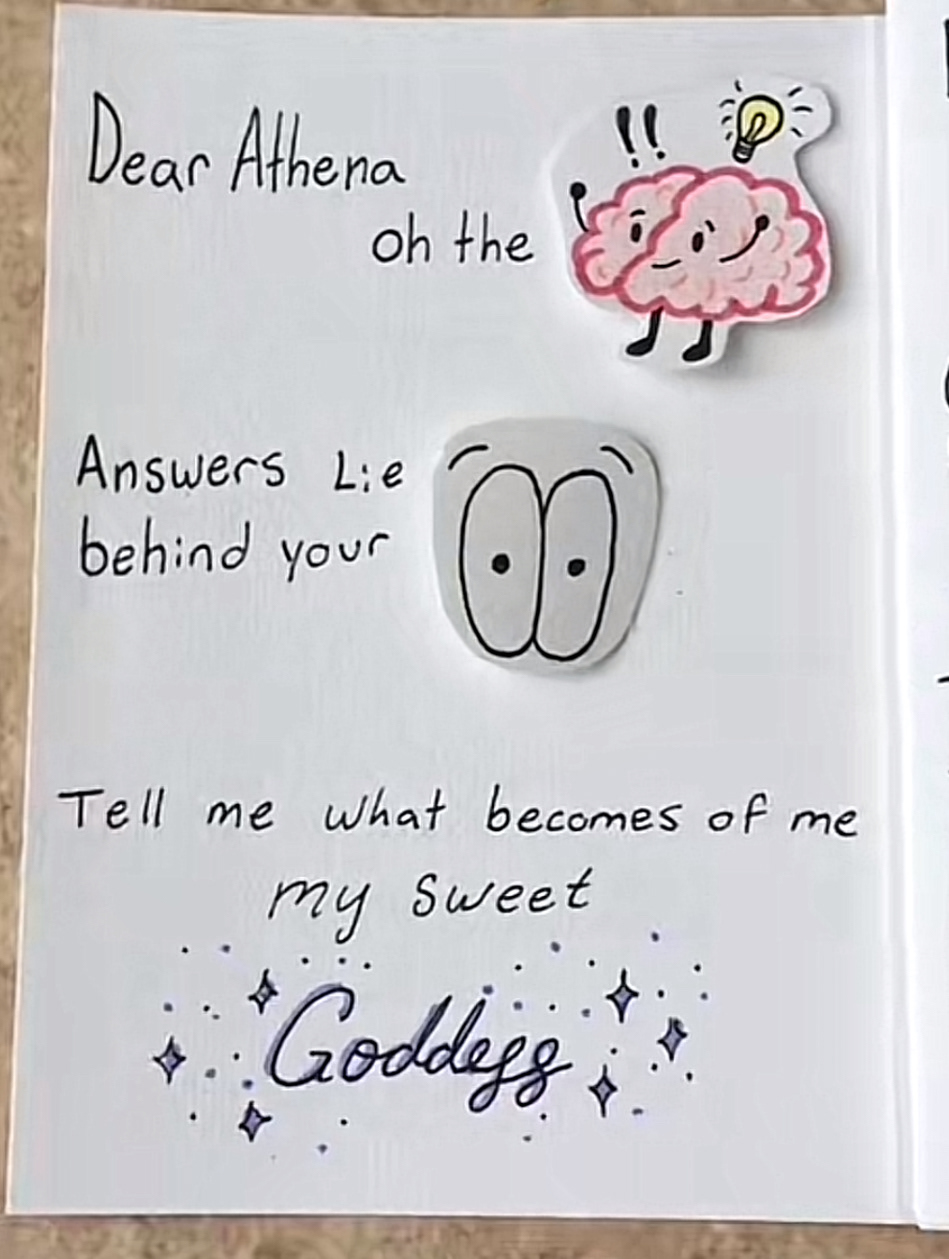 Dear Athena
oh the
!!
Answers Lie
behind your
Tell me what becomes of me
my sweet
Goddess